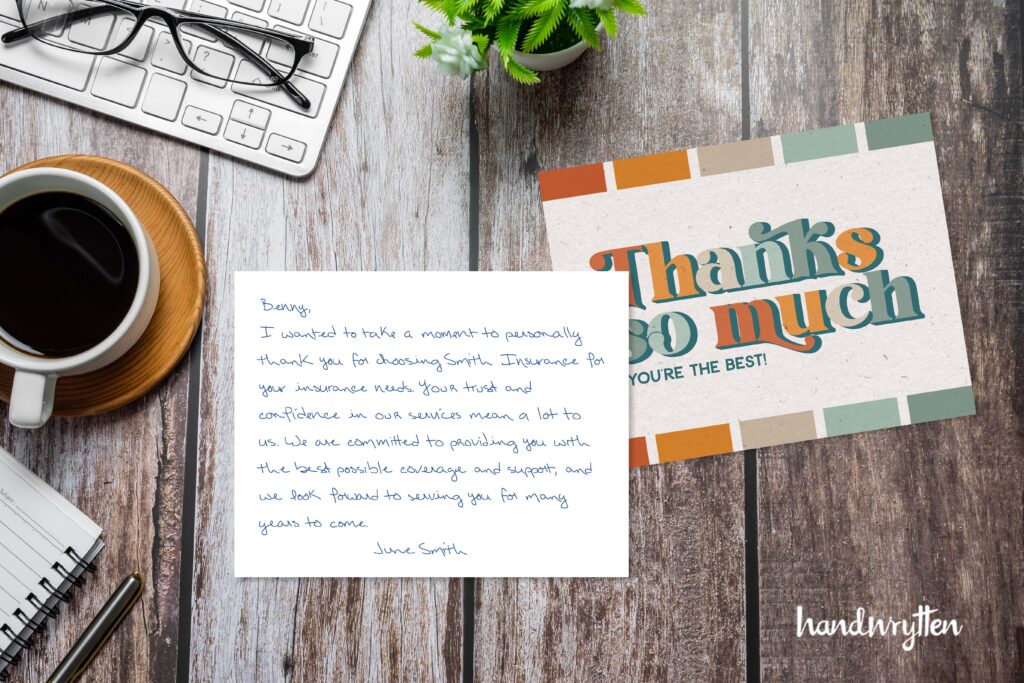 Thanks
so much
YOU'RE THE BEST!
Benny,
I wanted to take a moment to personally
thank you for choosing Smith Insurance for
your insurance needs. Your trust and
confidence in our services mean a lot to
us. We are committed to providing you with
the best possible coverage and support, and
we look forward to serving you for many
years to come.
June Smith
Subject:
handwrytten